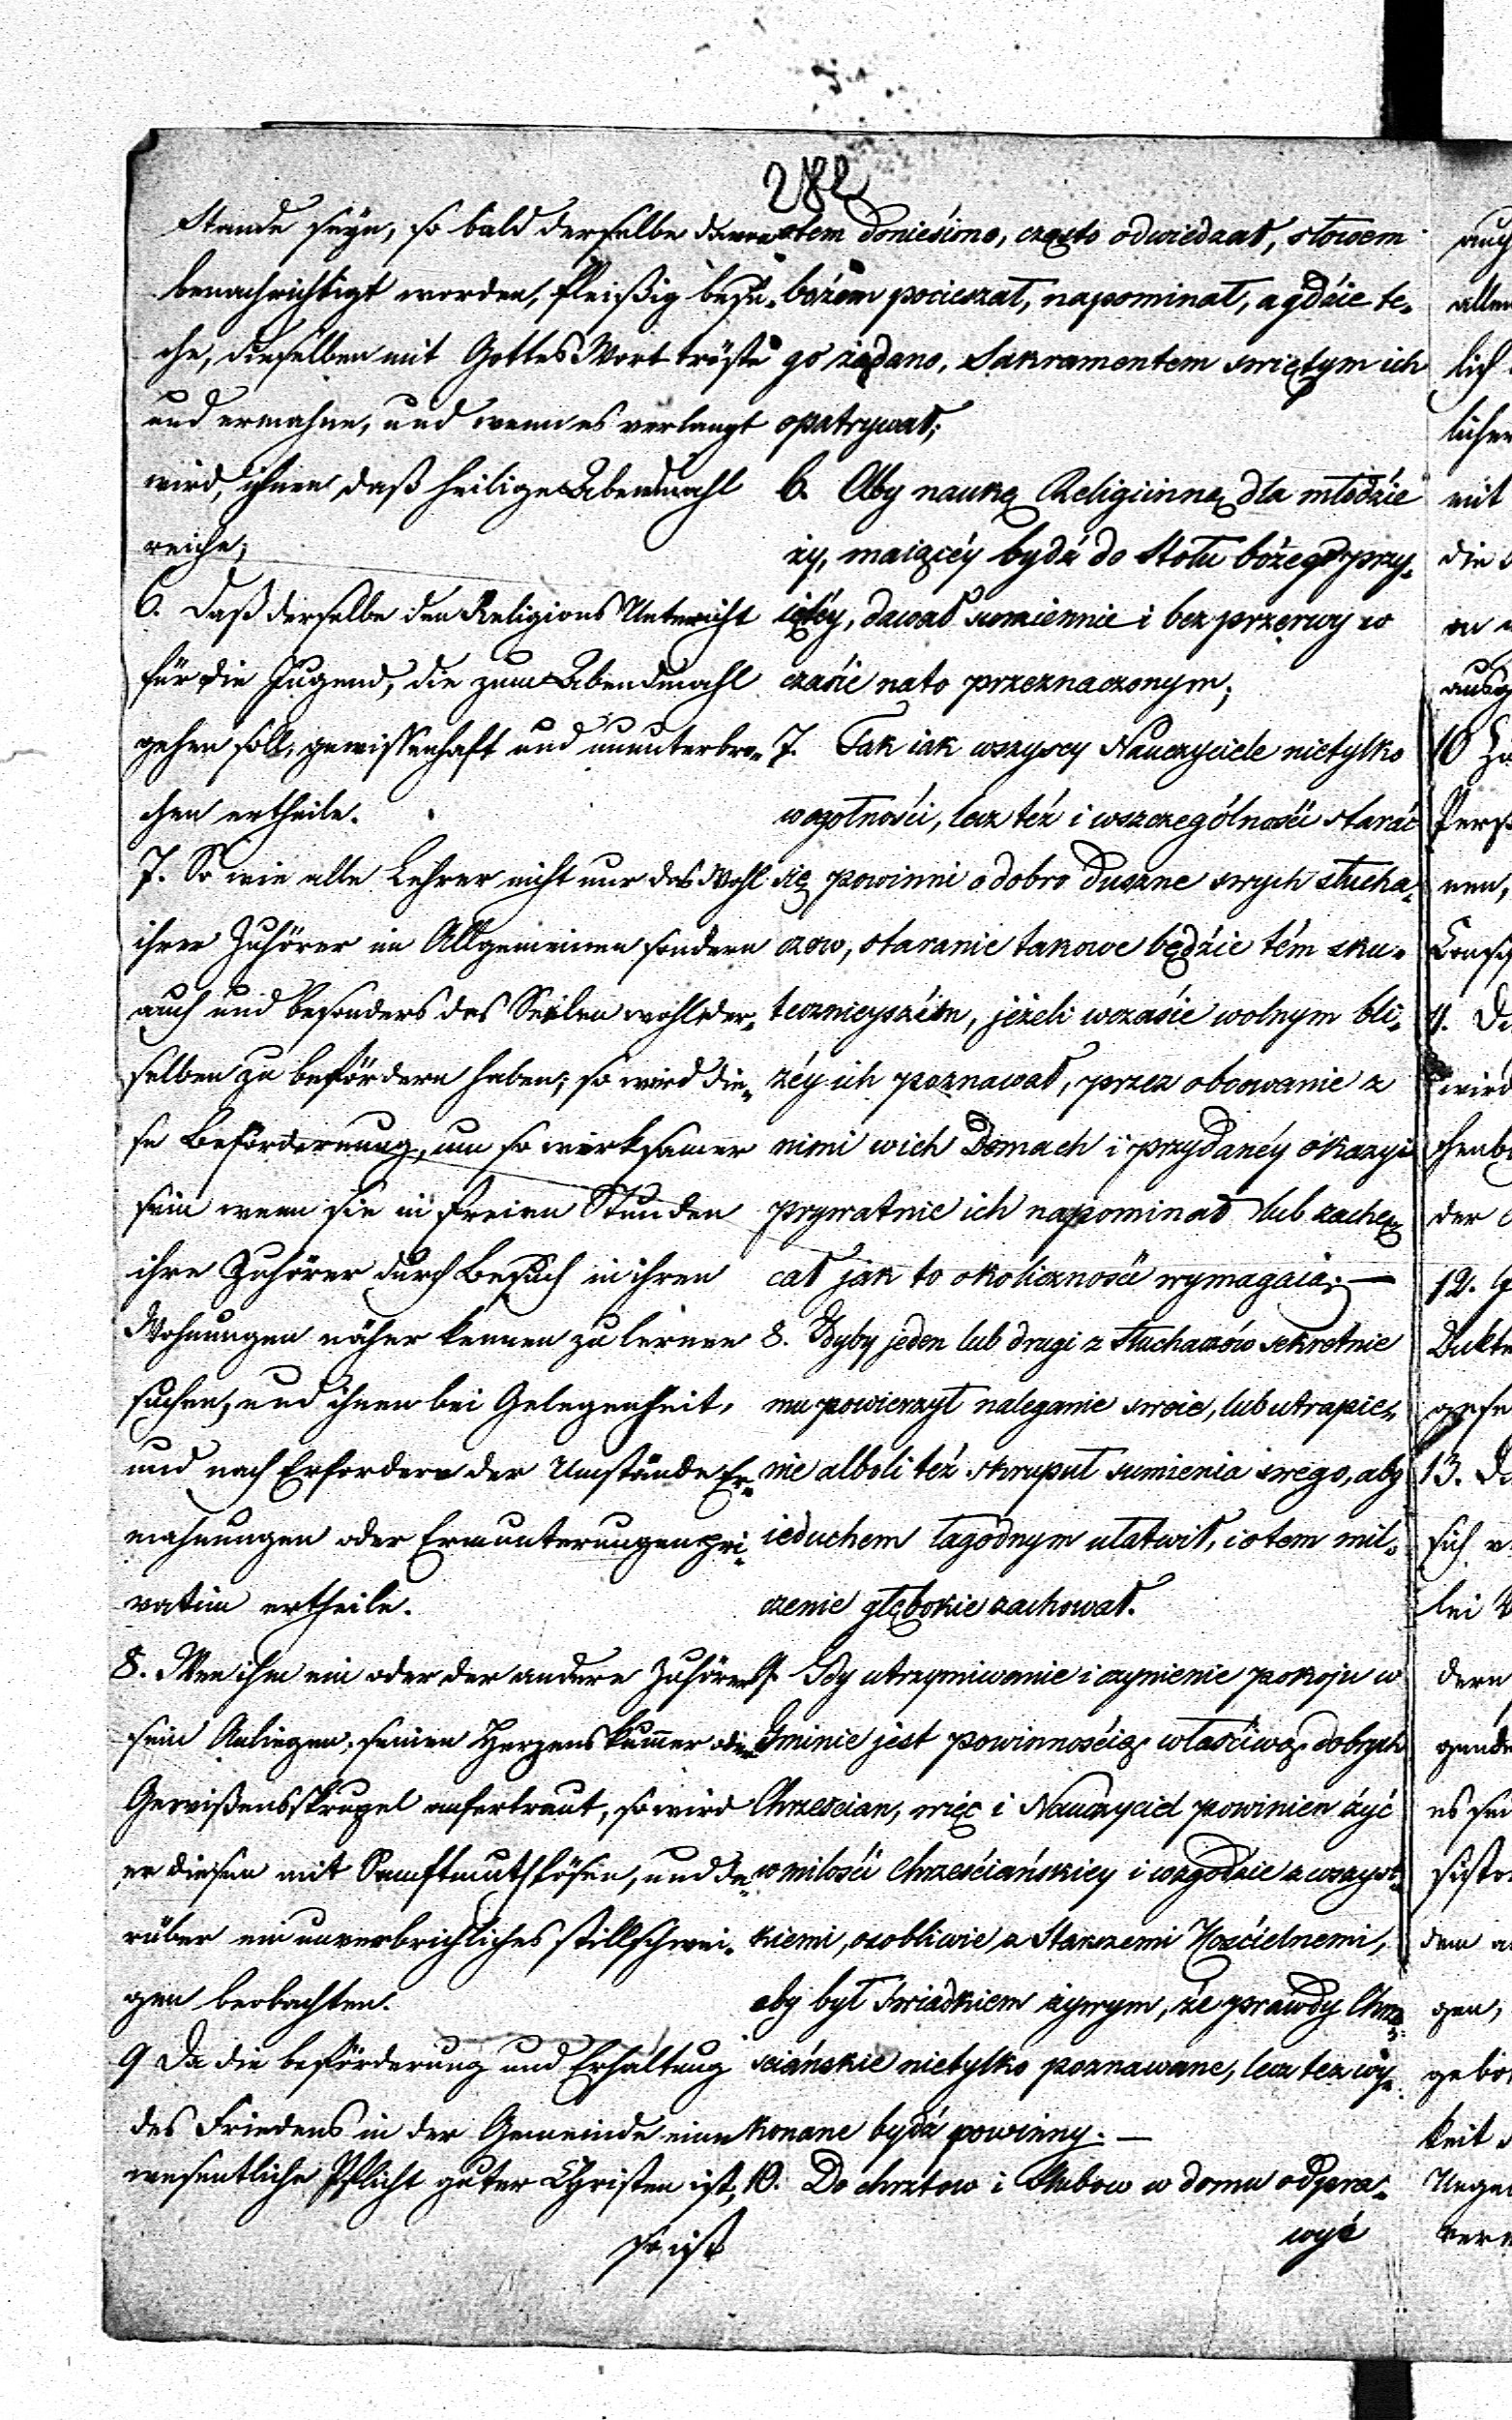 282
Stande seyn, so bald derselbe davon
benachrichtigt worden, fleißig besu-
che, dieselben mit Gottes Wort tröste
und ermahne, und wenn es verlangt
wird, ihnen daß heilige Abendmahl
reiche;
6. Daß derselbe den Religions Unterricht
für die Jugend, die zum Abendmahl
gehen soll, gewissenhaft und ununterbro-
chen ertheile.
7. So wie alle Lehrer nicht nur das Wohl
ihrer Zuhörer im Allgemeinen sondern
auch und besonders das Seelen wohl der-
selben zu befördern haben; so wird die-
se Beförderung, um so wirksamer
sein wenn sie in freien Stunden
ihre Zuhörer durch Besuch in ihren
Wohnungen näher kennen zu lernen
suchen, und ihnen bei Gelegenheit,
und nach Erfordern der Umstände Er-
mahnungen oder Ermunterungen pri-
vatim ertheile.
8. Wen ihm ein oder der andere Zuhörer
sein Anliegen, seinen Herzenskumer oder
Gewißensskrupel anfertraut, so wird
er diesen mit Sanftmuth lösen, und da-
rüber ein unverbrichliches stillschwei-
gen beobachten.
9 Da die beförderung und Erhaltung
des Friedens in der Gemeinde eine
wesentliche Pflicht guter Christen ist,
so ist
otem doniesimo, często odwiedzał, słowem
bożém pocieszał, napominał, a gdzie te-
go żądano, Sakramentem swiętym ich
opatrywał;
6. Aby naukę Religiinnę dla młodzie
ży, maiącéy bydź do Stołu bożego przy-
iętéy, dawał sumiennie i bez przerwy w
czasie nato przeznaczonym;
7. Jak iak wszyscy Nauczyciele nietylko
wogołności, lecz téż i wszczególności starać
się powinni o dobro duszne swych słucha-
czow, staranie takowe będzie tém sku-
tecznieyszém, jeżeli wczasie wolnym bli-
żéy ich poznawał, przez obcowanie z
nimi w ich Domach i przydanéy okazyi
prywatnie ich napominał lub zachę
cał jak to okoliczności wymagaią; —
8. Gdyby jeden lub drugi z Słuchaczów sekretnie
mu powierzył naleganie swoie, lub utrapie-
nie alboli téż skrupuł sumienia swego, aby
ieduchem łagodnym ułatwił, i o tem mil-
czenie głębokie zachował.
9. Gdy utrzymiwanie i czynienie pokoju w
Gminie jest powinnością właściwą dobrych
Chrześcian, więc i Nauczyciel powinien żyć
w miłości Chrześciańskiey i wzgodzie z wszyst-
kiemi, osobliwie z Starszemi Kościelnemi,
aby był świadkiem żywym, że prawdy Chrze-
sciańskie nietylko poznawane, lecz tez wy-
konane bydź powinny. —
10. Do chrztow i Slubow w domu odpra-
wyć
auch
allen
lich
lichen
mit
die
10
nen,
11.
wird
der
12.
13.
sich
lei
dern
dem
gen,
keit